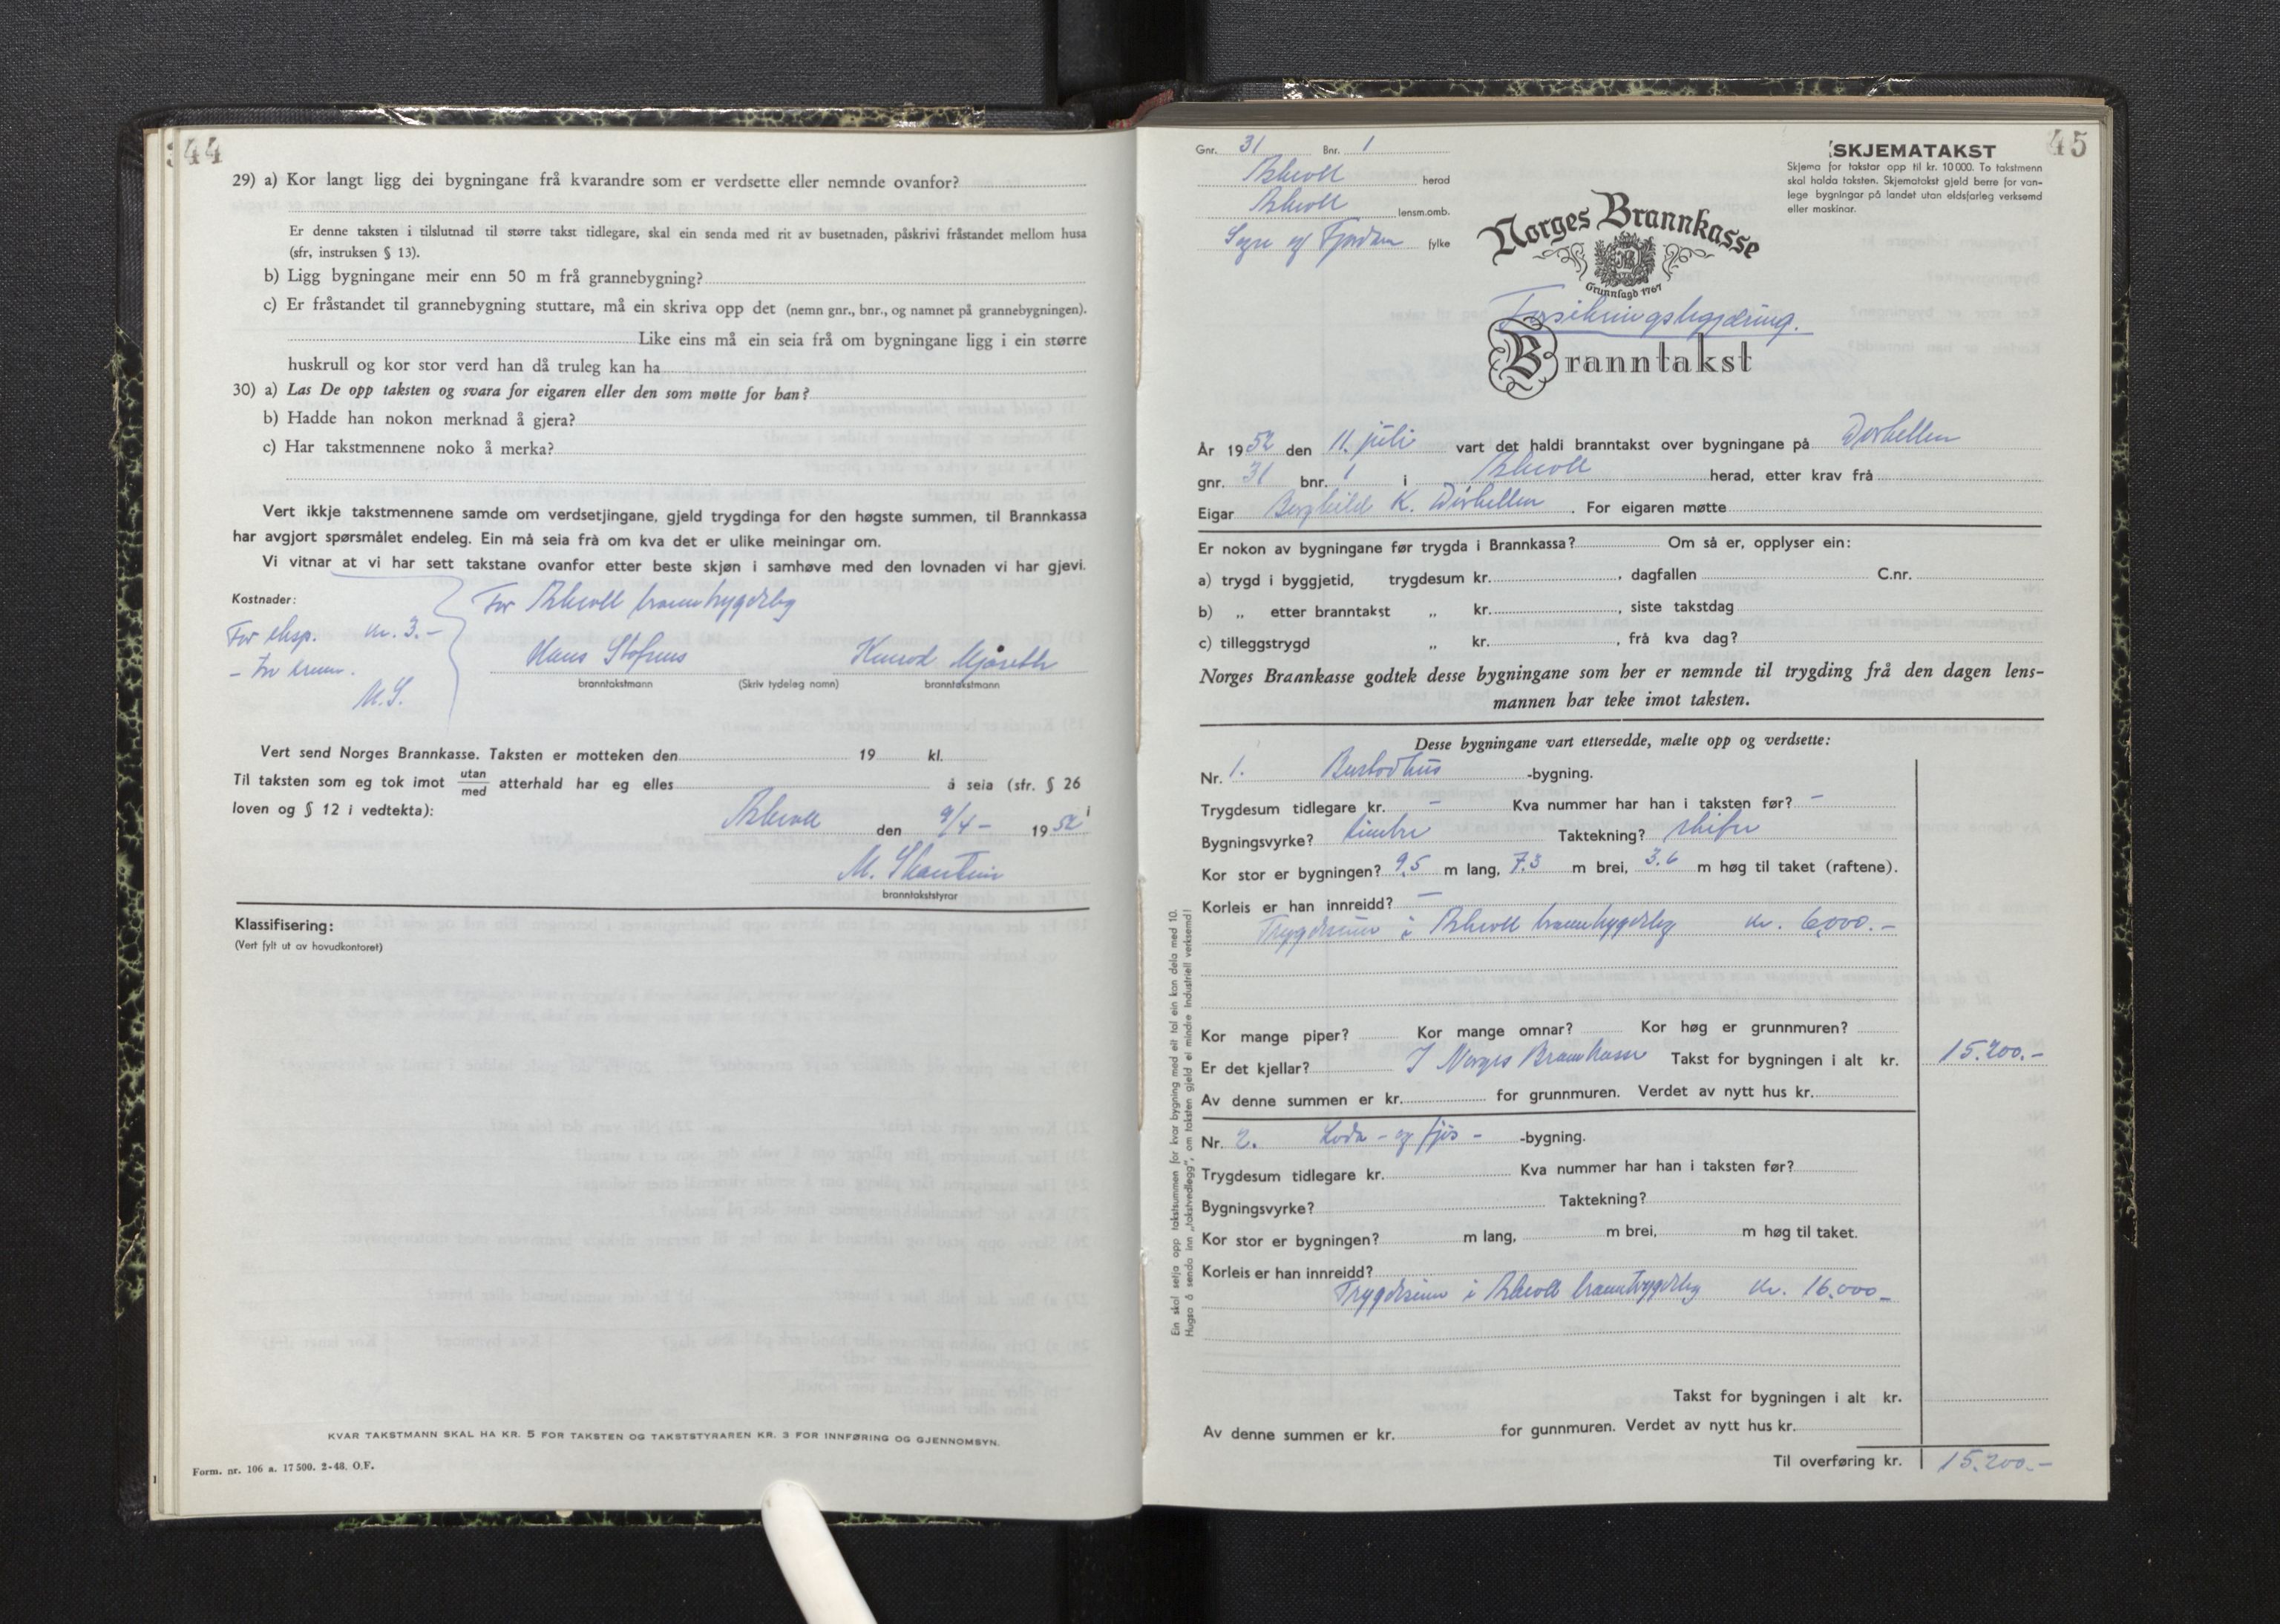 44
29) a) Kor langt ligg dei bygningane frå kvarandre som er verdsette eller nemnde ovanfor?
Er denne taksten i tilslutnad til større takst tidlegare, skal ein senda med rit av busetnaden, påskrivi fråstandet mellom husa
(sfr, instruksen § 13).
b) Ligg bygningane meir enn 50 m frå grannebygning?
c) Er fråstandet til grannebygning stuttare, må ein skriva opp det (nemn gnr., bnr., og namnet på grannebygningen).
Like eins må ein seia frå om bygningane ligg i ein større
huskrull og kor stor verd han då truleg kan ha
30) a) Las De opp taksten og svara for eigaren eller den som møtte for han?
b) Hadde han nokon merknad å gjera?
c) Har takstmennene noko å merka?
Vert ikkje takstmennene samde om verdsetjingane, gjeld trygdinga for den høgste summen, til Brannkassa
har avgjort spørsmålet endeleg. Ein må seia frå om kva det er ulike meiningar om.
Vi vitnar at vi har sett takstane ovanfor etter beste skjøn i samhøve med den lovnaden vi har gjevi.
Kostnader:
For Askvoll branntrygdelag
For eksp. kr. 3.-
M.S.
Hans Stofsnes Konrad
branntakstmann (Skriv tydeleg namn) branntakstmann
Vert send Norges Brannkasse. Taksten er motteken den 19 kl.
Til taksten som eg tok imot utan/med atterhald har eg elles å seia (sfr. § 26 i
loven og § 12 i vedtekta):
Askvoll den 9/4- 1952
M.
branntakststyrar
Klassifisering:
(Vert fylt ut av hovudkontoret)
KVAR TAKSTMANN SKAL HA KR. 5 FOR TAKSTEN OG TAKSTSTYRAREN KR. 3 FOR INNFØRING OG GJENNOMSYN.
Form. nr. 106 a. 17500. 2-48. O.F.
45
Gnr. 31 Bnr. 1
Askvoll herad
Askvoll lensm.omb.
Sogn og Fjordane fylke
SKJEMATAKST
Skjema for takstar opp til kr. 10 000. To takstmenn
skal halda taksten. Skjematakst gjeld berre for van-
lege bygningar på landet utan eldsfarleg verksemd
eller maskinar.
Norges Brannkasse
Grunnlagd 1767
Forsikringsbegjæring.
Branntakst
År 1952 den 11. juli vart det haldi branntakst over bygningane på Dørhellen
gnr. 31 bnr. 1 i Askvoll herad, etter krav frå
Eigar Borghild K. Dørhellen. For eigaren møtte
Er nokon av bygningane før trygda i Brannkassa? Om så er, opplyser ein:
a) trygd i byggjetid, trygdesum kr. , dagfallen C.nr.
b) „ etter branntakst „ kr. , siste takstdag
c) tilleggstrygd „ kr. , frå kva dag?
Norges Brannkasse godtek desse bygningane som her er nemnde til trygding frå den dagen lens-
mannen har teke imot taksten.
Desse bygningane vart ettersedde, mælte opp og verdsette:
Nr. 1. Bustadhus -bygning.
Trygdesum tidlegare kr. - Kva nummer har han i taksten før? -
Bygningsvyrke? timbre Taktekning? skifer
Kor stor er bygningen? 9.5 m lang, 7.3 m brei, 3.6 m høg til taket (raftene).
Korleis er han innreidd? -
Trygdesum i Askvoll branntrygdelag kr. 6,000.-
Kor mange piper? Kor mange omnar? Kor høg er grunnmuren?
Er det kjellar? I Norges Brannkasse Takst for bygningen i alt kr. 15.200.-
Av denne summen er kr. for grunnmuren. Verdet av nytt hus kr.
Nr. 2. Løda- og fjøs- -bygning.
Trygdesum tidlegare kr. Kva nummer har han i taksten før?
Bygningsvyrke? Taktekning?
Kor stor er bygningen? m lang, m brei, m høg til taket.
Korleis er han innreidd?
Trygdesum i Askvoll branntrygdelag kr. 16.000-
Takst for bygningen i alt kr.
Av denne summen er kr. for gunnmuren. Verdet av nytt hus kr.
Til overføring kr. 15.200.-
Ein skal setja opp takstsummen for kvar bygning med eit tal ein kan dela med 10.
Hugsa å senda inn „takstvedlegg", om taksten gjeld ei mindre industriell verksemd!